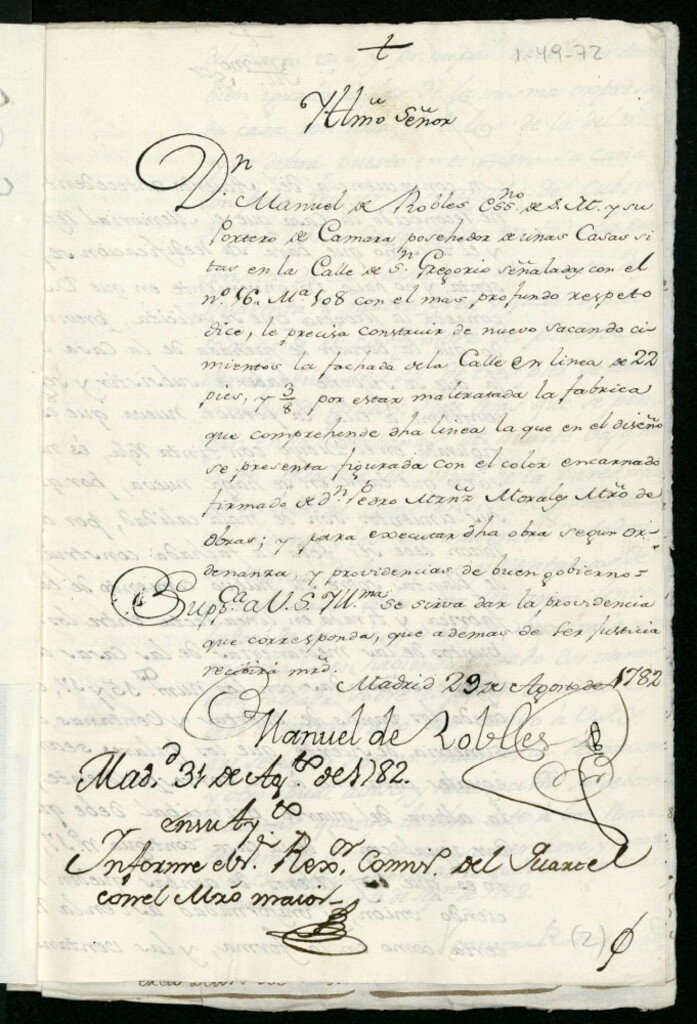 1-49-72
Yllmo Señor
Dn Manuel de Robles essno de S. M. y su
Portero de Camara posehedor de unas Casas si
tas en la Calle de Sn Gregorio señaladas con el
no 16 Ma 108 con el mas profundo respeto
dice, le precisa construir de nuevo sacando ci-
mientos la fachada dela Calle en linea de 22
pies, y 3/8 por estar maltratada la fabrica
que comprehende dha linea la que en el diseño
se presenta figurada con el color encarnado
firmado de dn Pedro Mrnz Morales Mtro de
obras; y para executar dha obra segun or-
denanza, y providencias de buen gobierno=
Suppca a V. S. Yllma se sirva dar la providencia
que corresponda, que ademas de ser justicia
recibirá mrd.
Madrid 29 de Agosto de 1782
Manuel de Robles
Madd 31 de Agto de 1782.
en su Ayto
Informe el Sr Rexor Comiso del Quartel
con el Mtro maior
(2)